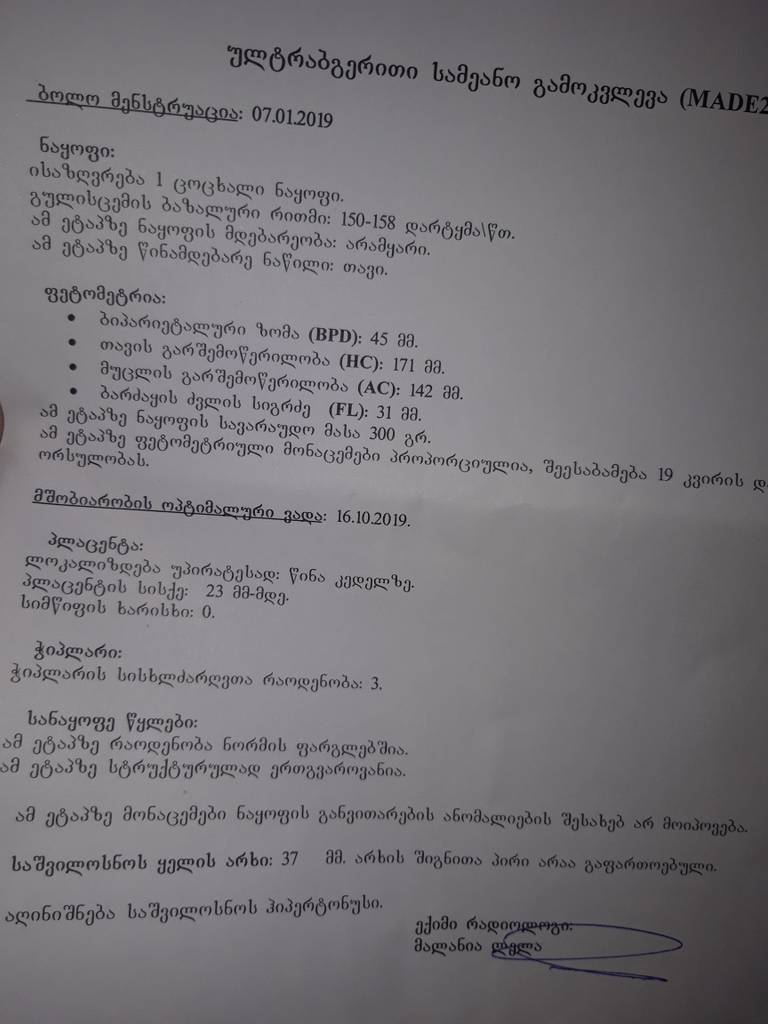 ულტრაბგერითი სამეანო გამოკვლევა (MADE2
ბოლო მენსტრუაცია: 07.01.2019
ნაყოფი:
ისაზღვრება 1 ცოცხალი ნაყოფი.
გულისცემის ბაზალური რითმი: 150-158 დარტყმა\წთ.
ამ ეტაპზე ნაყოფის მდებარეობა: არამყარი.
ამ ეტაპზე წინამდებარე ნაწილი: თავი.
ფეტომეტრია:
• ბიპარიეტალური ზომა (BPD): 45 მმ.
• თავის გარშემოწერილობა (HC): 171 მმ.
• მუცლის გარშემოწერილობა (AC): 142 მმ.
• ბარძაყის ძვლის სიგრძე (FL): 31 მმ.
ამ ეტაპზე ნაყოფის სავარაუდო მასა 300 გრ.
ამ ეტაპზე ფეტომეტრიული მონაცემები პროპორციულია, შეესაბამება 19 კვირის დ
ორსულობას.
მშობიარობის ოპტიმალური ვადა: 16.10.2019.
პლაცენტა:
ლოკალიზდება უპირატესად: წინა კედელზე.
პლაცენტის სისქე: 23 მმ-მდე.
სიმწიფის ხარისხი: 0.
ჭიპლარი:
ჭიპლარის სისხლძარღვთა რაოდენობა: 3.
სანაყოფე წყლები:
ამ ეტაპზე რაოდენობა ნორმის ფარგლებშია.
ამ ეტაპზე სტრუქტურულად ერთგვაროვანია.
ამ ეტაპზე მონაცემები ნაყოფის განვითარების ანომალიების შესახებ არ მოიპოვება.
საშვილოსნოს ყელის არხი: 37 მმ. არხის შიგნითა პირი არაა გაფართოებული.
აღინიშნება საშვილოსნოს ჰიპერტონუსი.
ექიმი რადიოლოგი:
მალანია ლელა